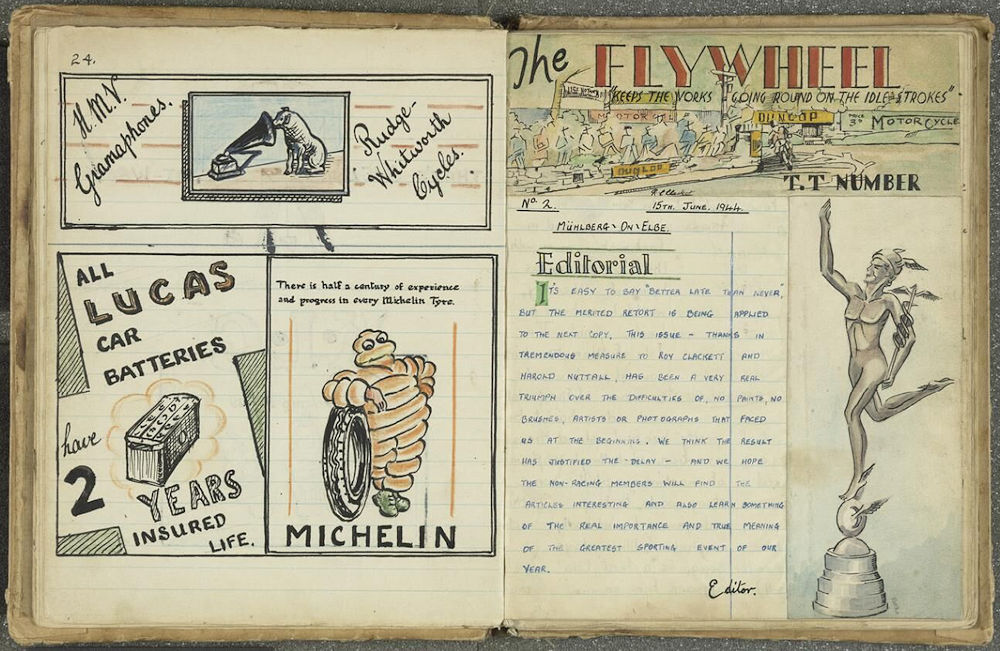 24.
H.M.V.
Gramaphones.
Rudge-
Whitworth
Cycles.
ALL
LUCAS
CAR
BATTERIES
have
2
YEARS
INSURED
LIFE.
There is half a century of experience
and progress in every Michelin Tyre.
MICHELIN
The FLYWHEEL
"KEEPS THE WORKS GOING ROUND ON THE IDLE STROKES"
MOTOR CYCLE
DUNLOP
MOTOR CYCLE
DUNLOP
T.T NUMBER
No 2.
15TH. JUNE. 1944.
MÜHLBERG-ON-ELBE.
Editorial
IT'S EASY TO SAY "BETTER LATE THAN NEVER",
BUT THE MERITED RETORT IS BEING APPLIED
TO THE NEXT COPY, THIS ISSUE - THANKS IN
TREMENDOUS MEASURE TO ROY CLACKETT AND
HAROLD NUTTALL, HAS BEEN A VERY REAL
TRIUMPH OVER THE DIFFICULTIES OF, NO PAINTS, NO
BRUSHES, ARTISTS OR PHOTOGRAPHS THAT FACED
US AT THE BEGINNING. WE THINK THE RESULT
HAS JUSTIFIED THE DELAY - AND WE HOPE
THE NON-RACING MEMBERS WILL FIND THE
ARTICLES INTERESTING AND ALSO LEARN SOMETHING
OF THE REAL IMPORTANCE AND TRUE MEANING
OF THE GREATEST SPORTING EVENT OF OUR
YEAR.
Editor.